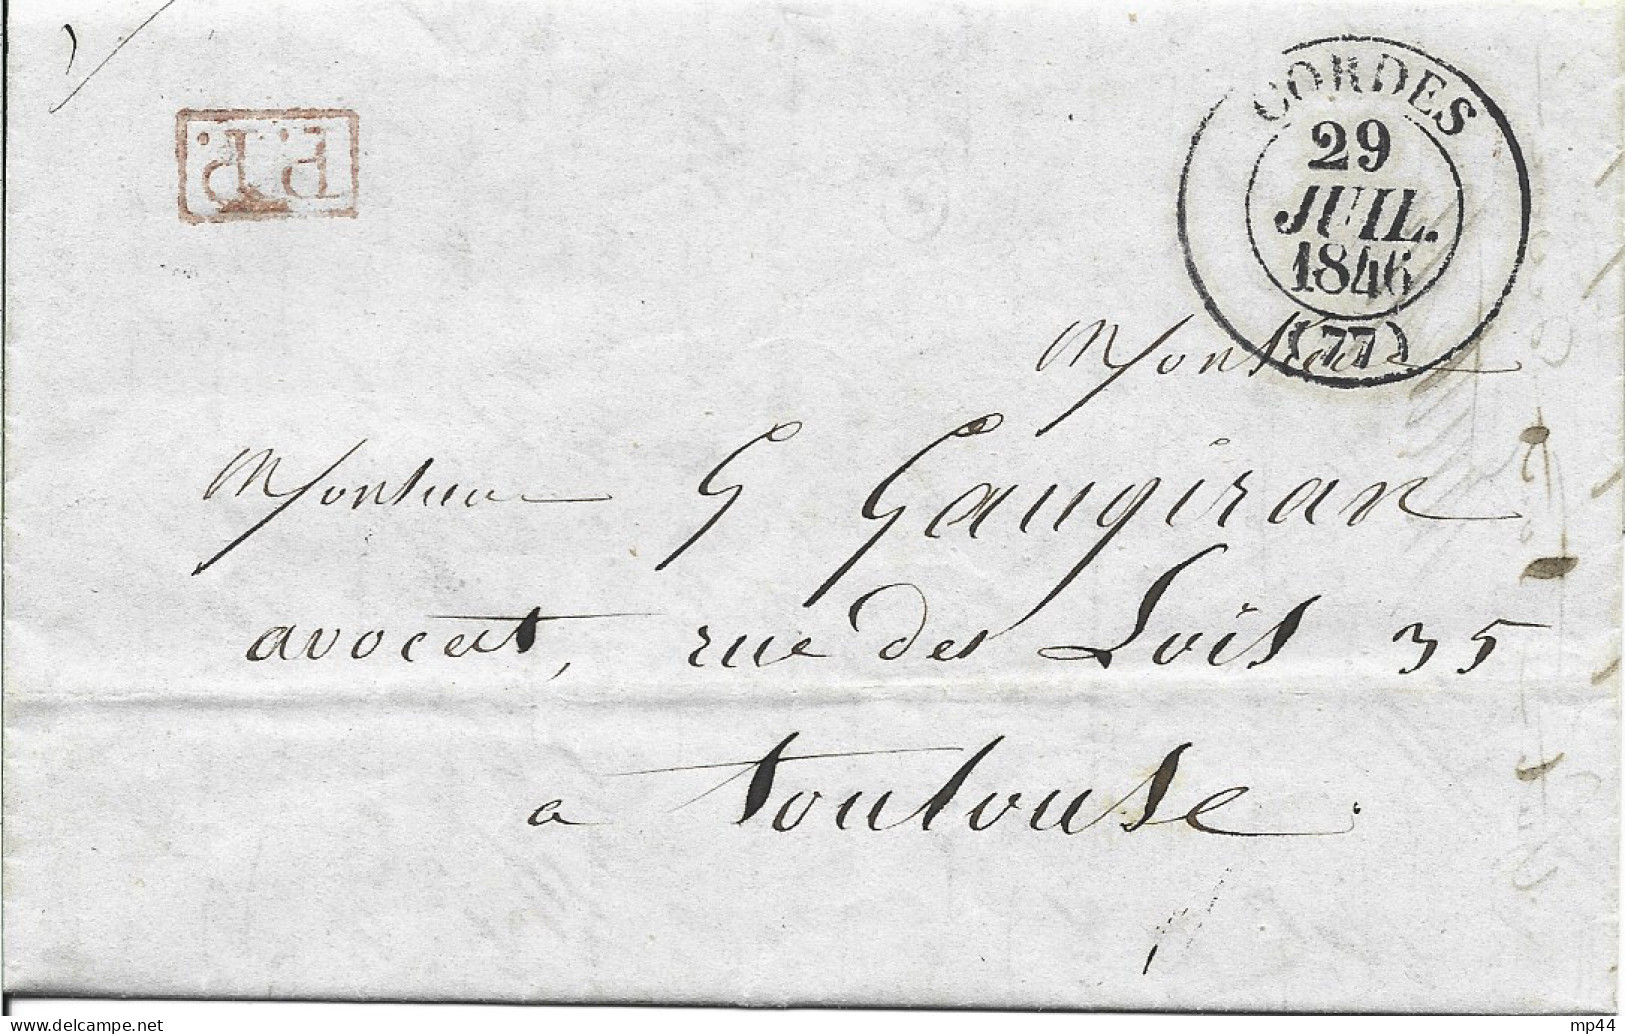 P.P.
CORDES
29
JUIL.
1846
(77)
Monsieur
Monsieur G Gaugiran
avocat, rue des Lois 35
a Toulouse.
delcampe.net
mp44